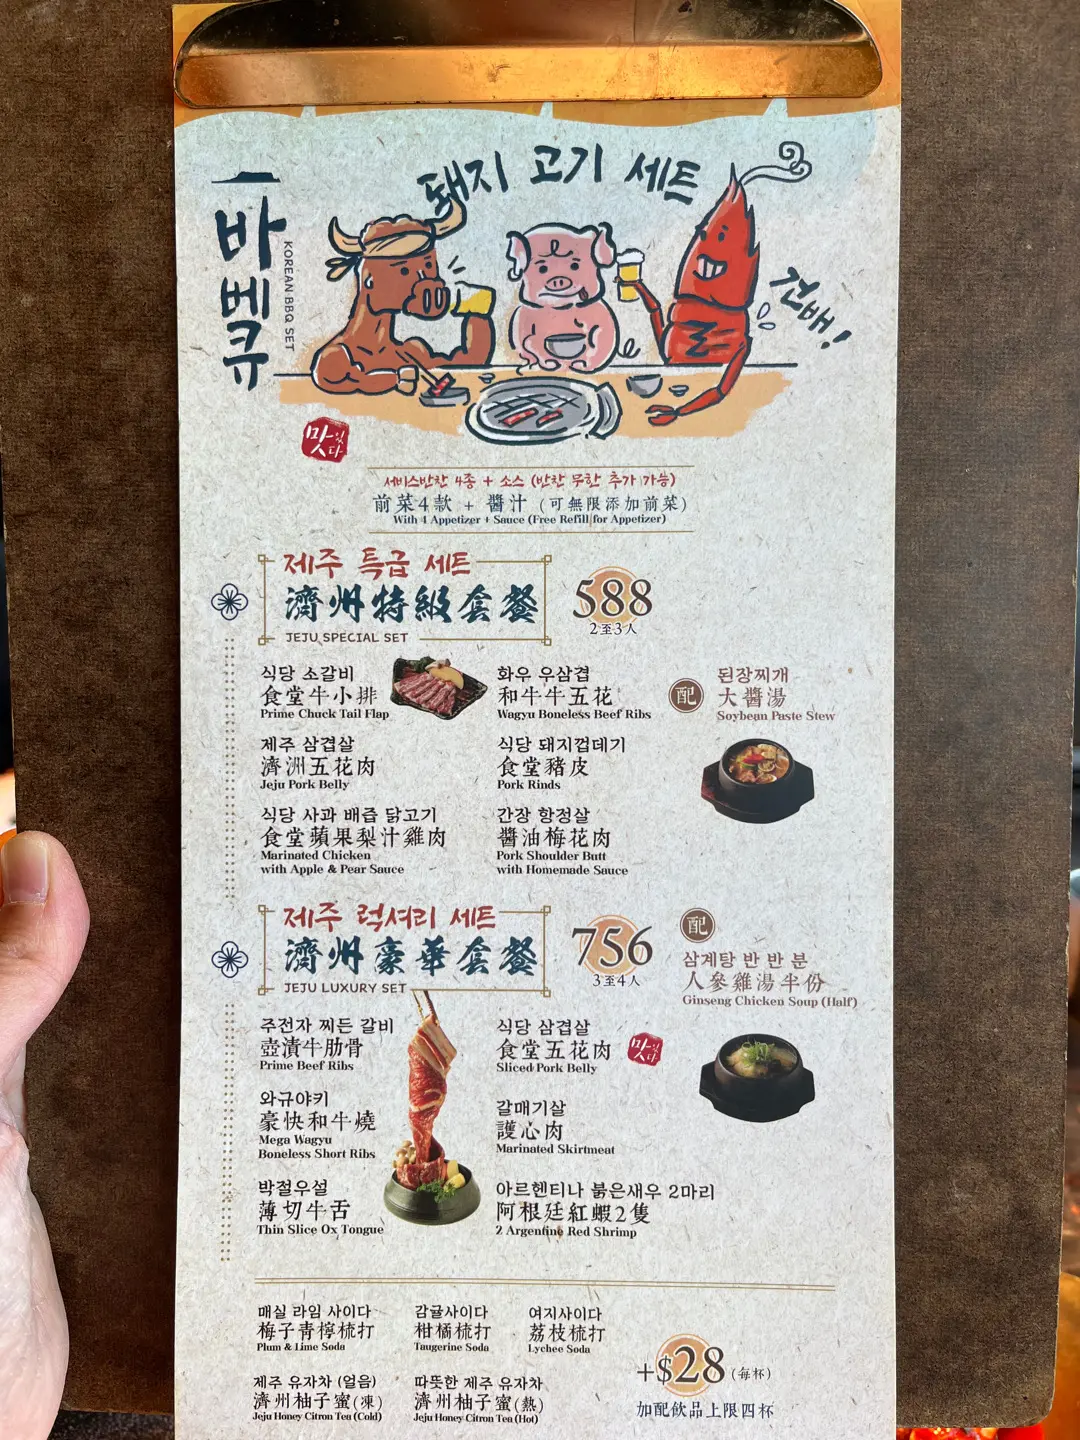 돼지 고기 세트
바베큐
KOREAN BBQ SET
건배!
맛있다
서비스반찬 4종 + 소스 (반찬 무한 추가 가능)
前菜4款 + 醬汁 (可無限添加前菜)
With 4 Appetizer + Sauce (Free Refill for Appetizer)
제주 특급 세트
濟州特級套餐
JEJU SPECIAL SET
588
2至3人
식당 소갈비
食堂牛小排
Prime Chuck Tail Flap
화우 우삼겹
和牛牛五花
Wagyu Boneless Beef Ribs
配
된장찌개
大醬湯
Soybean Paste Stew
제주 삼겹살
濟洲五花肉
Jeju Pork Belly
식당 돼지껍데기
食堂豬皮
Pork Rinds
식당 사과 배즙 닭고기
食堂蘋果梨汁雞肉
Marinated Chicken
with Apple & Pear Sauce
간장 항정살
醬油梅花肉
Pork Shoulder Butt
with Homemade Sauce
제주 럭셔리 세트
濟州豪華套餐
JEJU LUXURY SET
756
3至4人
配
삼계탕 반 반 분
人參雞湯半份
Ginseng Chicken Soup (Half)
주전자 찌든 갈비
壺漬牛肋骨
Prime Beef Ribs
식당 삼겹살
食堂五花肉
Sliced Pork Belly
맛있다
와규야키
豪快和牛燒
Mega Wagyu
Boneless Short Ribs
갈매기살
護心肉
Marinated Skirtmeat
박절우설
薄切牛舌
Thin Slice Ox Tongue
아르헨티나 붉은새우 2마리
阿根廷紅蝦2隻
2 Argentine Red Shrimp
매실 라임 사이다
梅子青檸梳打
Plum & Lime Soda
감귤사이다
柑橘梳打
Taugerine Soda
여지사이다
荔枝梳打
Lychee Soda
제주 유자차 (얼음)
濟州柚子蜜(凍)
Jeju Honey Citron Tea (Cold)
따뜻한 제주 유자차
濟州柚子蜜(熱)
Jeju Honey Citron Tea (Hot)
+$28 (每杯)
加配飲品上限四杯